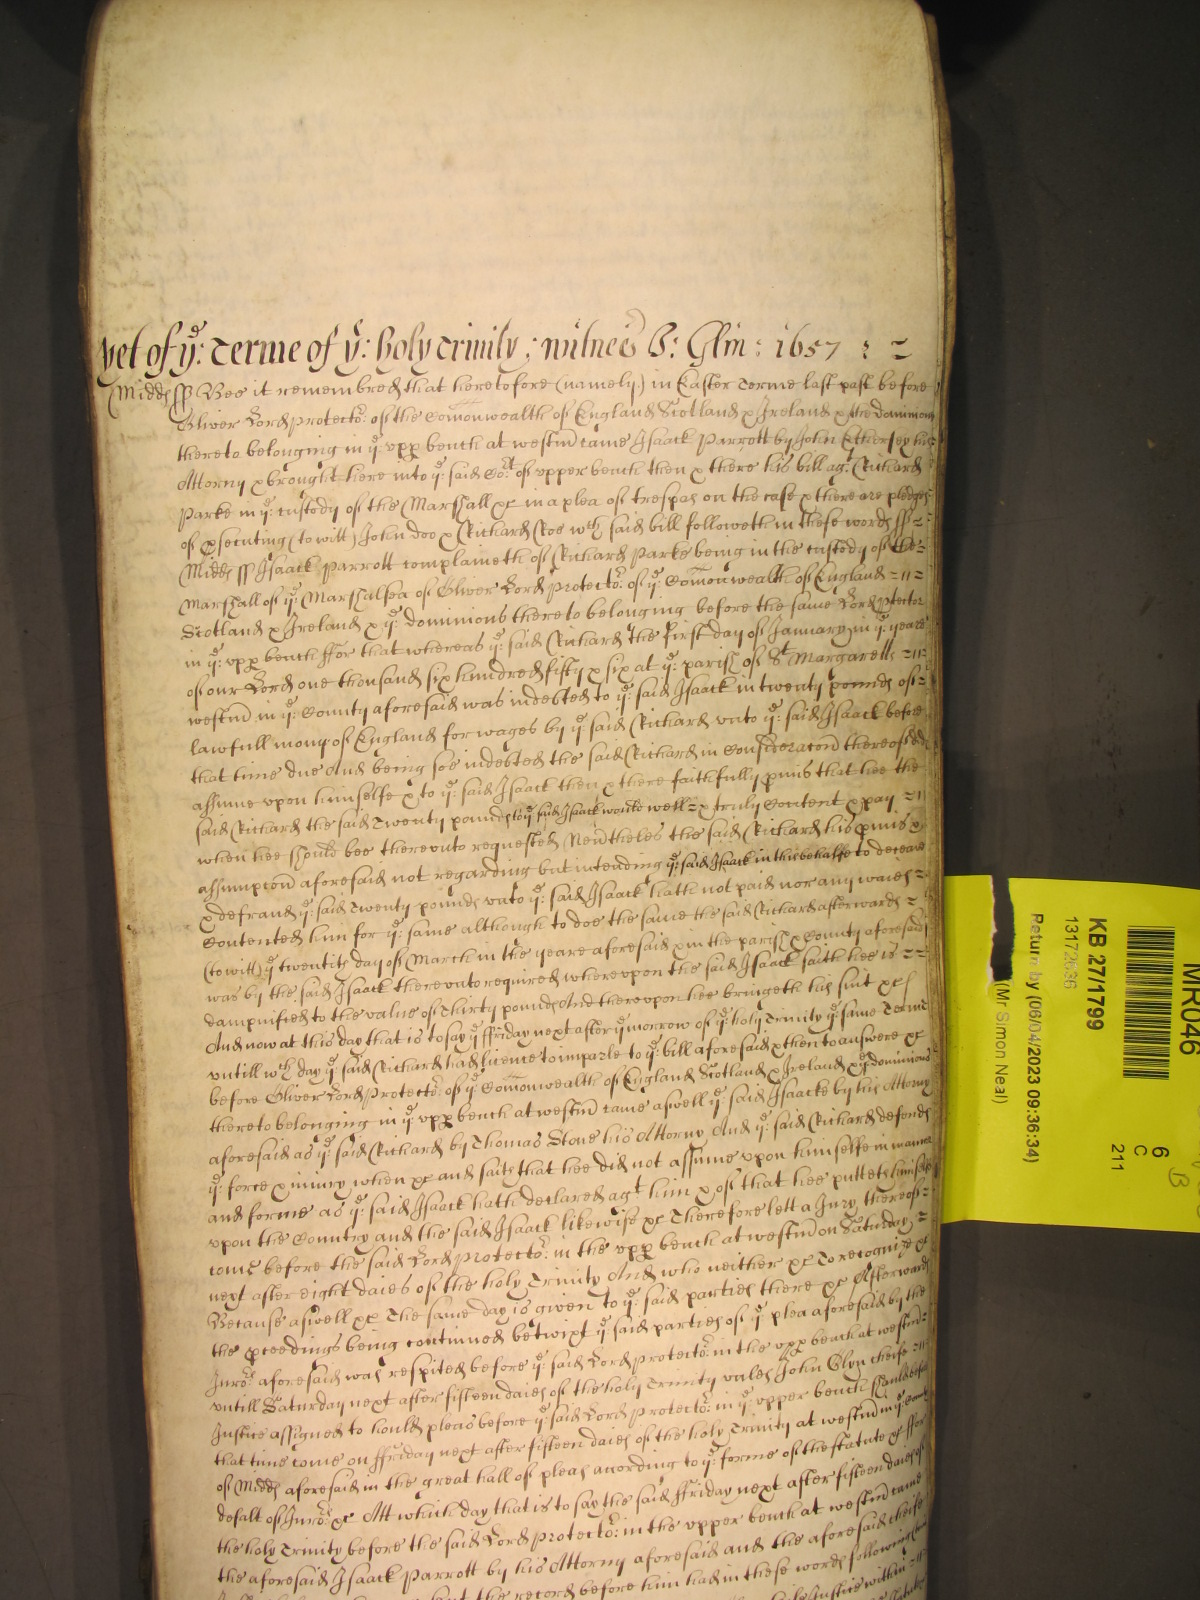 yet of ye: Terme of ye: holy Trinity ; witnes J: Glin : 1657 :
Midds ss Bee it remembred that heretofore (namely) in Easter Terme last past before
Oliver Lord Protector: of the Comonwealth of England Scotland & Ireland & the dominions
thereto belonging in ye: upp bench at westm came Isaack Parrott by John Ethersey his
Attorny & brought here into ye: said Cort of upper bench then & there his bill agt Richard
Parke in ye: custody of the Marshall &c in a plea of trespas on the case & there are pledges
of psecuting (to witt) John doo & Richard Roe wch said bill followeth in these words ss
Midds ss Isaack Parrott complaineth of Richard Parke being in the custody of the
Marshall of ye: Marshalsea of Oliver Lord Protector: of ye: Comonwealth of England
Scotland & Ireland & ye: dominions thereto belonging before the same Lord Ptector
in ye: upp bench ffor that whereas ye: said Richard the first day of January in ye: yeare
of our Lord one thousand six hundred fifty & six at ye: parish of St Margaretts
westm in ye: County aforesaid was indebted to ye: said Isaack in twenty pounds of
lawfull mony of England for wages by ye: said Richard unto ye: said Isaack before
that time due And being soe indebted the said Richard in Consideracon thereof did
assume upon himselfe & to ye: said Isaack then & there faithfully pmis that hee the
said Richard the said Twenty pounds to ye said Isaack would well & truly Content & pay
when hee should bee thereunto requested Neivtheles the said Richard his pmis &
assumpcon aforesaid not regarding but intending ye: said Isaack in this behalfe to deceave
& defraud ye: said twenty pounds unto ye: said Isaack hath not paid nor any waies
Contented him for ye: same although to doe the same the said Richard afterwards
(to witt) ye twentith day of March in the yeare aforesaid & in the parish & County aforesaid
was by the said Isaack thereunto required whereupon the said Isaack saith hee is
dampnified to the value of Thirty pounds And thereupon hee bringeth his suit &c
And now at this day that is to say ye ffriday next after ye morrow of ye: holy Trinity ye: same Terme
untill wch day ye: said Richard had licence to imparle to ye: bill aforesaid & then to answere &c
before Oliver Lord Protector: of ye: Comonwealth of England Scotland & Ireland & ye dominions
thereto belonging in ye: upp bench at westm came aswell ye: said Isaacke by his Attorny
aforesaid as ye: said Richard by Thomas Stone his Attorny And ye: said Richard defends
ye: force & iniury when &c and saith that hee did not assume upon himselfe in manner
and forme as ye: said Isaack hath declared agt him & of that hee putteth himselfe
upon the Country and the said Isaack likewise &c Therefore lett a Jury thereof
come before the said Lord Protector: in the upp bench at westm on Saturday
next after eight daies of the holy Trinity And who neither &c To recognize &c
Because aswell &c The same day is given to ye: said parties there &c Afterwards
the pceedings being continued betwixt ye: said parties of ye: plea aforesaid by the
Juror: aforesaid was respited before ye: said Lord Protector: in the upp bench at westm
untill Saturday next after fifteen daies of the holy Trinity unles John Glyn cheife
Justice assigned to hould pleas before ye: said Lord Protector: in ye: upper bench should before
that time come on ffriday next after fifteen daies of the holy Trinity at westm in ye: County
of Midds aforesaid in the great hall of pleas acording to ye: forme of the statute &c ffor
defalt of Juror: &c Att which day that is to say the said ffriday next after fifteen daies of
the holy Trinity before the said Lord Protector: in the upper bench at westm came
the aforesaid Isaack Parrott by his Attorny aforesaid and the aforesaid cheife
sent the record before him had in these words following
Justice within
MR046
6
C
211
B
KB 27/1799
13172636
Return by (06/04/2023 09:36:34)
(Mr Simon Neal)